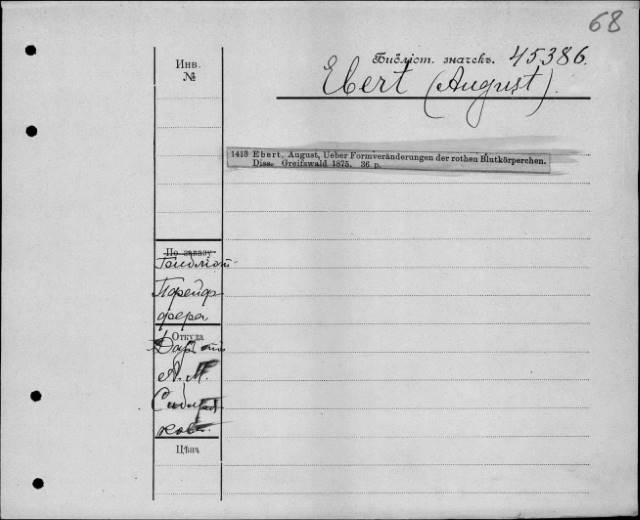 68
Инв.
№
Библіот. значекъ. 45386.
Ebert (August).
1413 Ebert, August, Ueber Formveränderungen der rothen Blutkörperchen.
Diss. Greifswald 1875. 36 p.
По заказу
Библіот.
Пфейф
фера
Откуда
Даръ
А. М.
Сибиря
кова
Цѣна